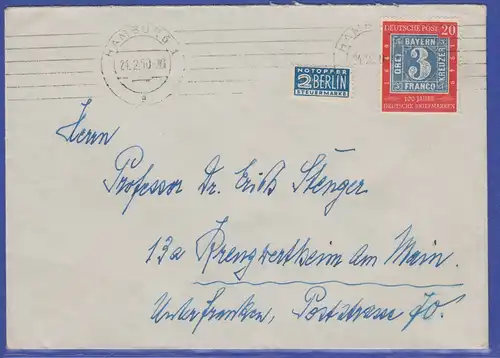 HAMBURG 1
24.2.50.-16
a
HAMB
NOTOPFER
2 BERLIN
STEUERMARKE
DEUTSCHE POST 20
BAYERN
DREI 3 KREUZER
FRANCO
100 JAHRE
DEUTSCHE BRIEFMARKEN
Herrn
Professor Dr. Erich Stenger
13a Kreuzwertheim am Main.
Unterfranken, Poststrasse 70.